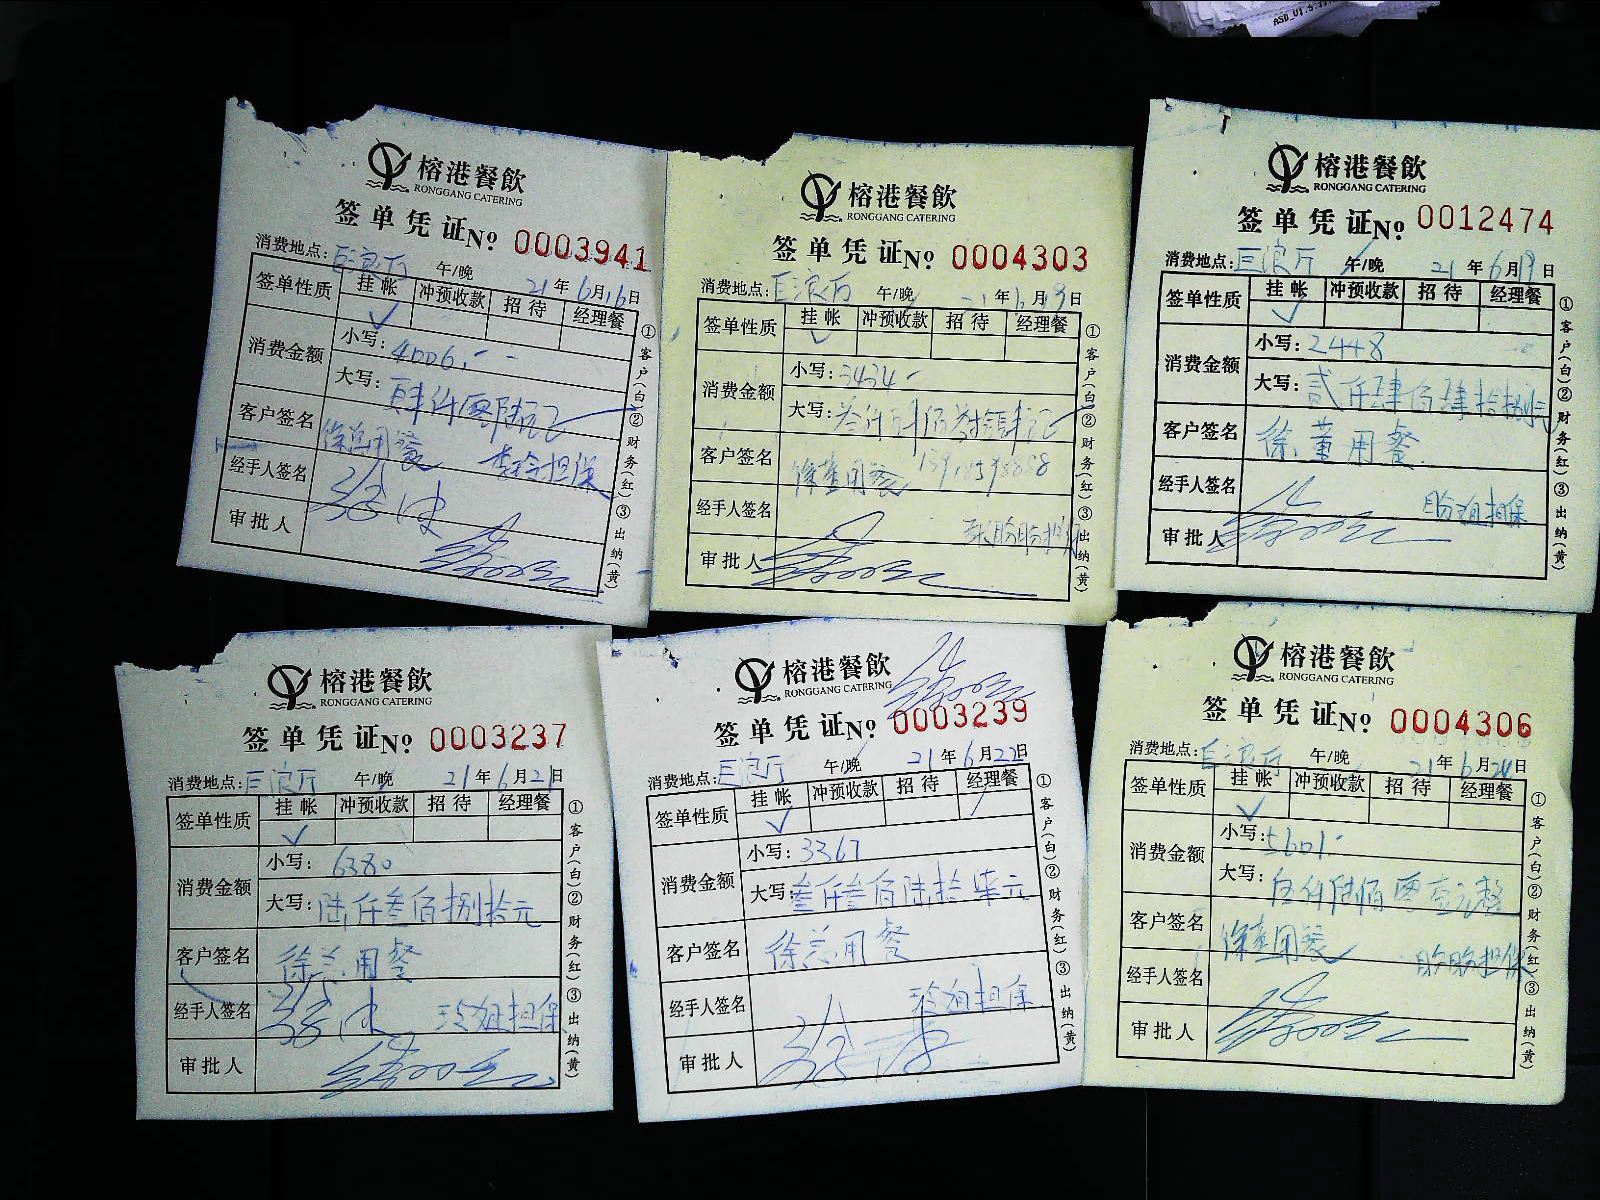 ASD_V1.5
榕港餐飲
RONGGANG CATERING
签单凭证No 0003941
消费地点:巨浪厅 午/晚 21年6月16日
签单性质 挂帐 冲预收款 招待 经理餐
✓
消费金额 小写:4006.-
大写:肆仟零陆元
客户签名 徐总用餐 担保
经手人签名
审批人
①客户(白)②财务(红)③出纳(黄)
榕港餐飲
RONGGANG CATERING
签单凭证No 0004303
消费地点:巨浪厅 午/晚 21年6月19日
签单性质 挂帐 冲预收款 招待 经理餐
✓
消费金额 小写:3434-
大写:叁仟肆佰叁拾肆元
客户签名 徐董用餐
经手人签名 盼盼担保
审批人
①客户(白)②财务(红)③出纳(黄)
榕港餐飲
RONGGANG CATERING
签单凭证No 0012474
消费地点:巨浪厅 午/晚 21年6月19日
签单性质 挂帐 冲预收款 招待 经理餐
✓
消费金额 小写:2448
大写:贰仟肆佰肆拾捌元
客户签名 徐董用餐
经手人签名 盼姐担保
审批人
①客户(白)②财务(红)③出纳(黄)
榕港餐飲
RONGGANG CATERING
签单凭证No 0003237
消费地点:巨浪厅 午/晚 21年6月21日
签单性质 挂帐 冲预收款 招待 经理餐
✓
消费金额 小写:6380
大写:陆仟叁佰捌拾元
客户签名 徐总用餐
经手人签名 玲姐担保
审批人
①客户(白)②财务(红)③出纳(黄)
榕港餐飲
RONGGANG CATERING
签单凭证No 0003239
消费地点:巨浪厅 午/晚 21年6月22日
签单性质 挂帐 冲预收款 招待 经理餐
✓
消费金额 小写:3367
大写:叁仟叁佰陆拾柒元
客户签名 徐总用餐
经手人签名 玲姐担保
审批人
①客户(白)②财务(红)③出纳(黄)
榕港餐飲
RONGGANG CATERING
签单凭证No 0004306
消费地点:巨浪厅 午/晚 21年6月24日
签单性质 挂帐 冲预收款 招待 经理餐
✓
消费金额 小写:5601.-
大写:伍仟陆佰零壹元整
客户签名 徐董用餐 盼盼担保
经手人签名
审批人
①客户(白)②财务(红)③出纳(黄)